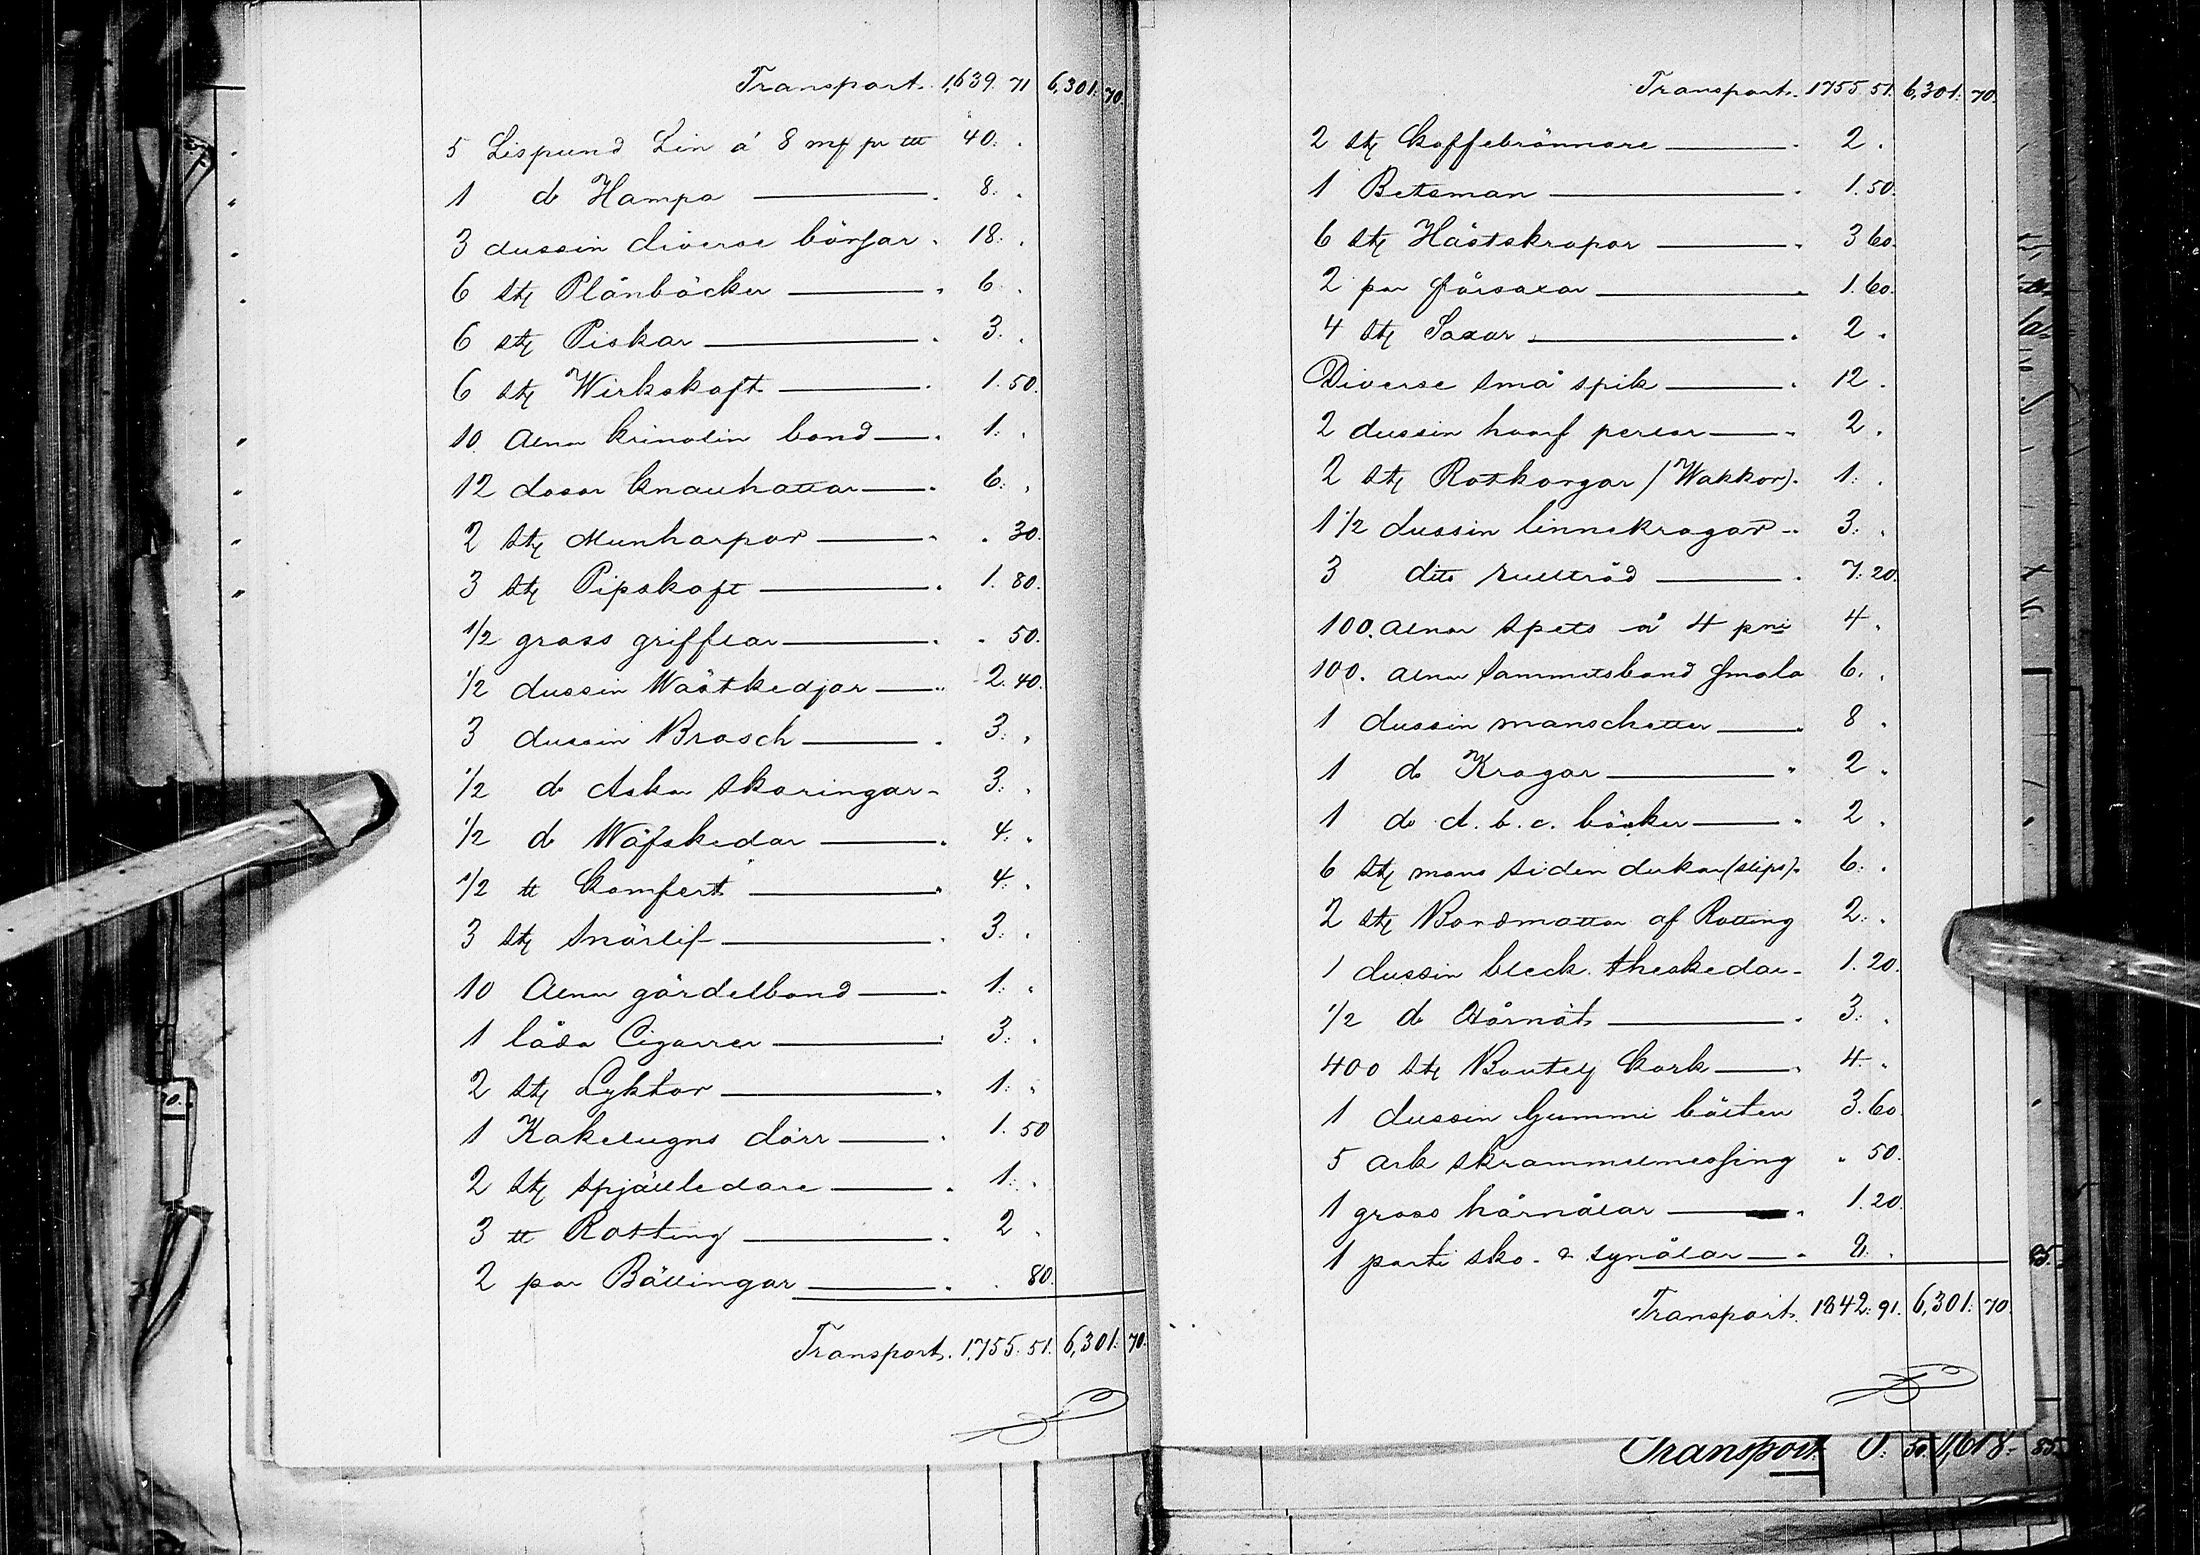 Transport. 1,639. 71 6,301: 70.
5 Lispund Lin á 8 mk pr ttt 40: .
1 do Hampa 8: .
3 dussin diverse börsar . 18: .
6 stk Plånböcker . 6 .
6 stk Piskar . 3: .
6 stk Wirkskaft . 1. 50.
10. Alnar krinolin band . 1: .
12 dosor knauhattar . 6: .
2 stk Munharpor . . 30.
3 stk Pipskaft . 1. 80.
1/2 gross grifflar . . 50.
1/2 dussin Wästkedjar 2. 40.
3 dussin Brosch . 3: .
1/2 do Aska skoringar . 3: .
1/2 do Wäfskedar . 4: .
1/2 tt Komfert . 4: .
3 stk Snörlif . 3: .
10 Alnar gördelband . 1: .
1 låda Cigarrer 3: .
2 stk Lyktor . 1: .
1 Kakelugns dörr . 1. 50
2 stk Spjälledare . 1: .
3 tt Rotting . 2 .
2 par Bällingar . . 80.
Transport. 1,755. 51. 6,301: 70.
Transport. 1755 51. 6,301: 70.
2 stk Kaffebrännare . 2 .
1 Betsman . 1. 50.
6 stk Hästskrapor . 3 60.
2 par fårsaxar . 1. 60.
4 stk Saxar . 2 .
Diverse små spik . 12 .
2 dussin perlor 2 .
2 stk Rotkorgar (Wakkor). 1: .
1 1/2 dussin linnekragar . 3: .
3 dito rulltråd . 7: 20.
100. alnar spets á 4 pni 4 .
100. alnar Sammetsband smala 6. .
1 dussin manschetter . 8 .
1 do Kragar 2 .
1 do A. b. c. böcker . 2 .
6 stk mans siden dukar (slips). 6: .
2 stk Bordmattor af Rotting 2: .
1 dussin bleck. theskedar . 1. 20.
1/2 do Hårnät . 3: .
400 stk Boutelj Kork . 4: .
1 dussin Gummi bälten 3. 60.
5 ark skrammelmessing . 50.
1 gross hårnålar . 1. 20
1 parti sko- & synålar . 2. .
Transport. 1842. 91. 6,301: 70.
Transport. 50 1,618. 85.